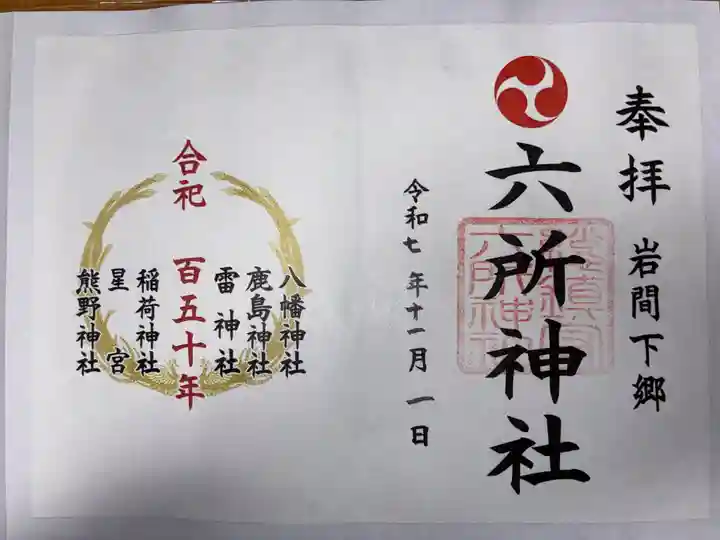 奉拝 岩間下郷
六所神社
令和七年十一月一日
八幡神社
鹿島神社
雷神社
合祀 百五十年
稲荷神社
星宮
熊野神社